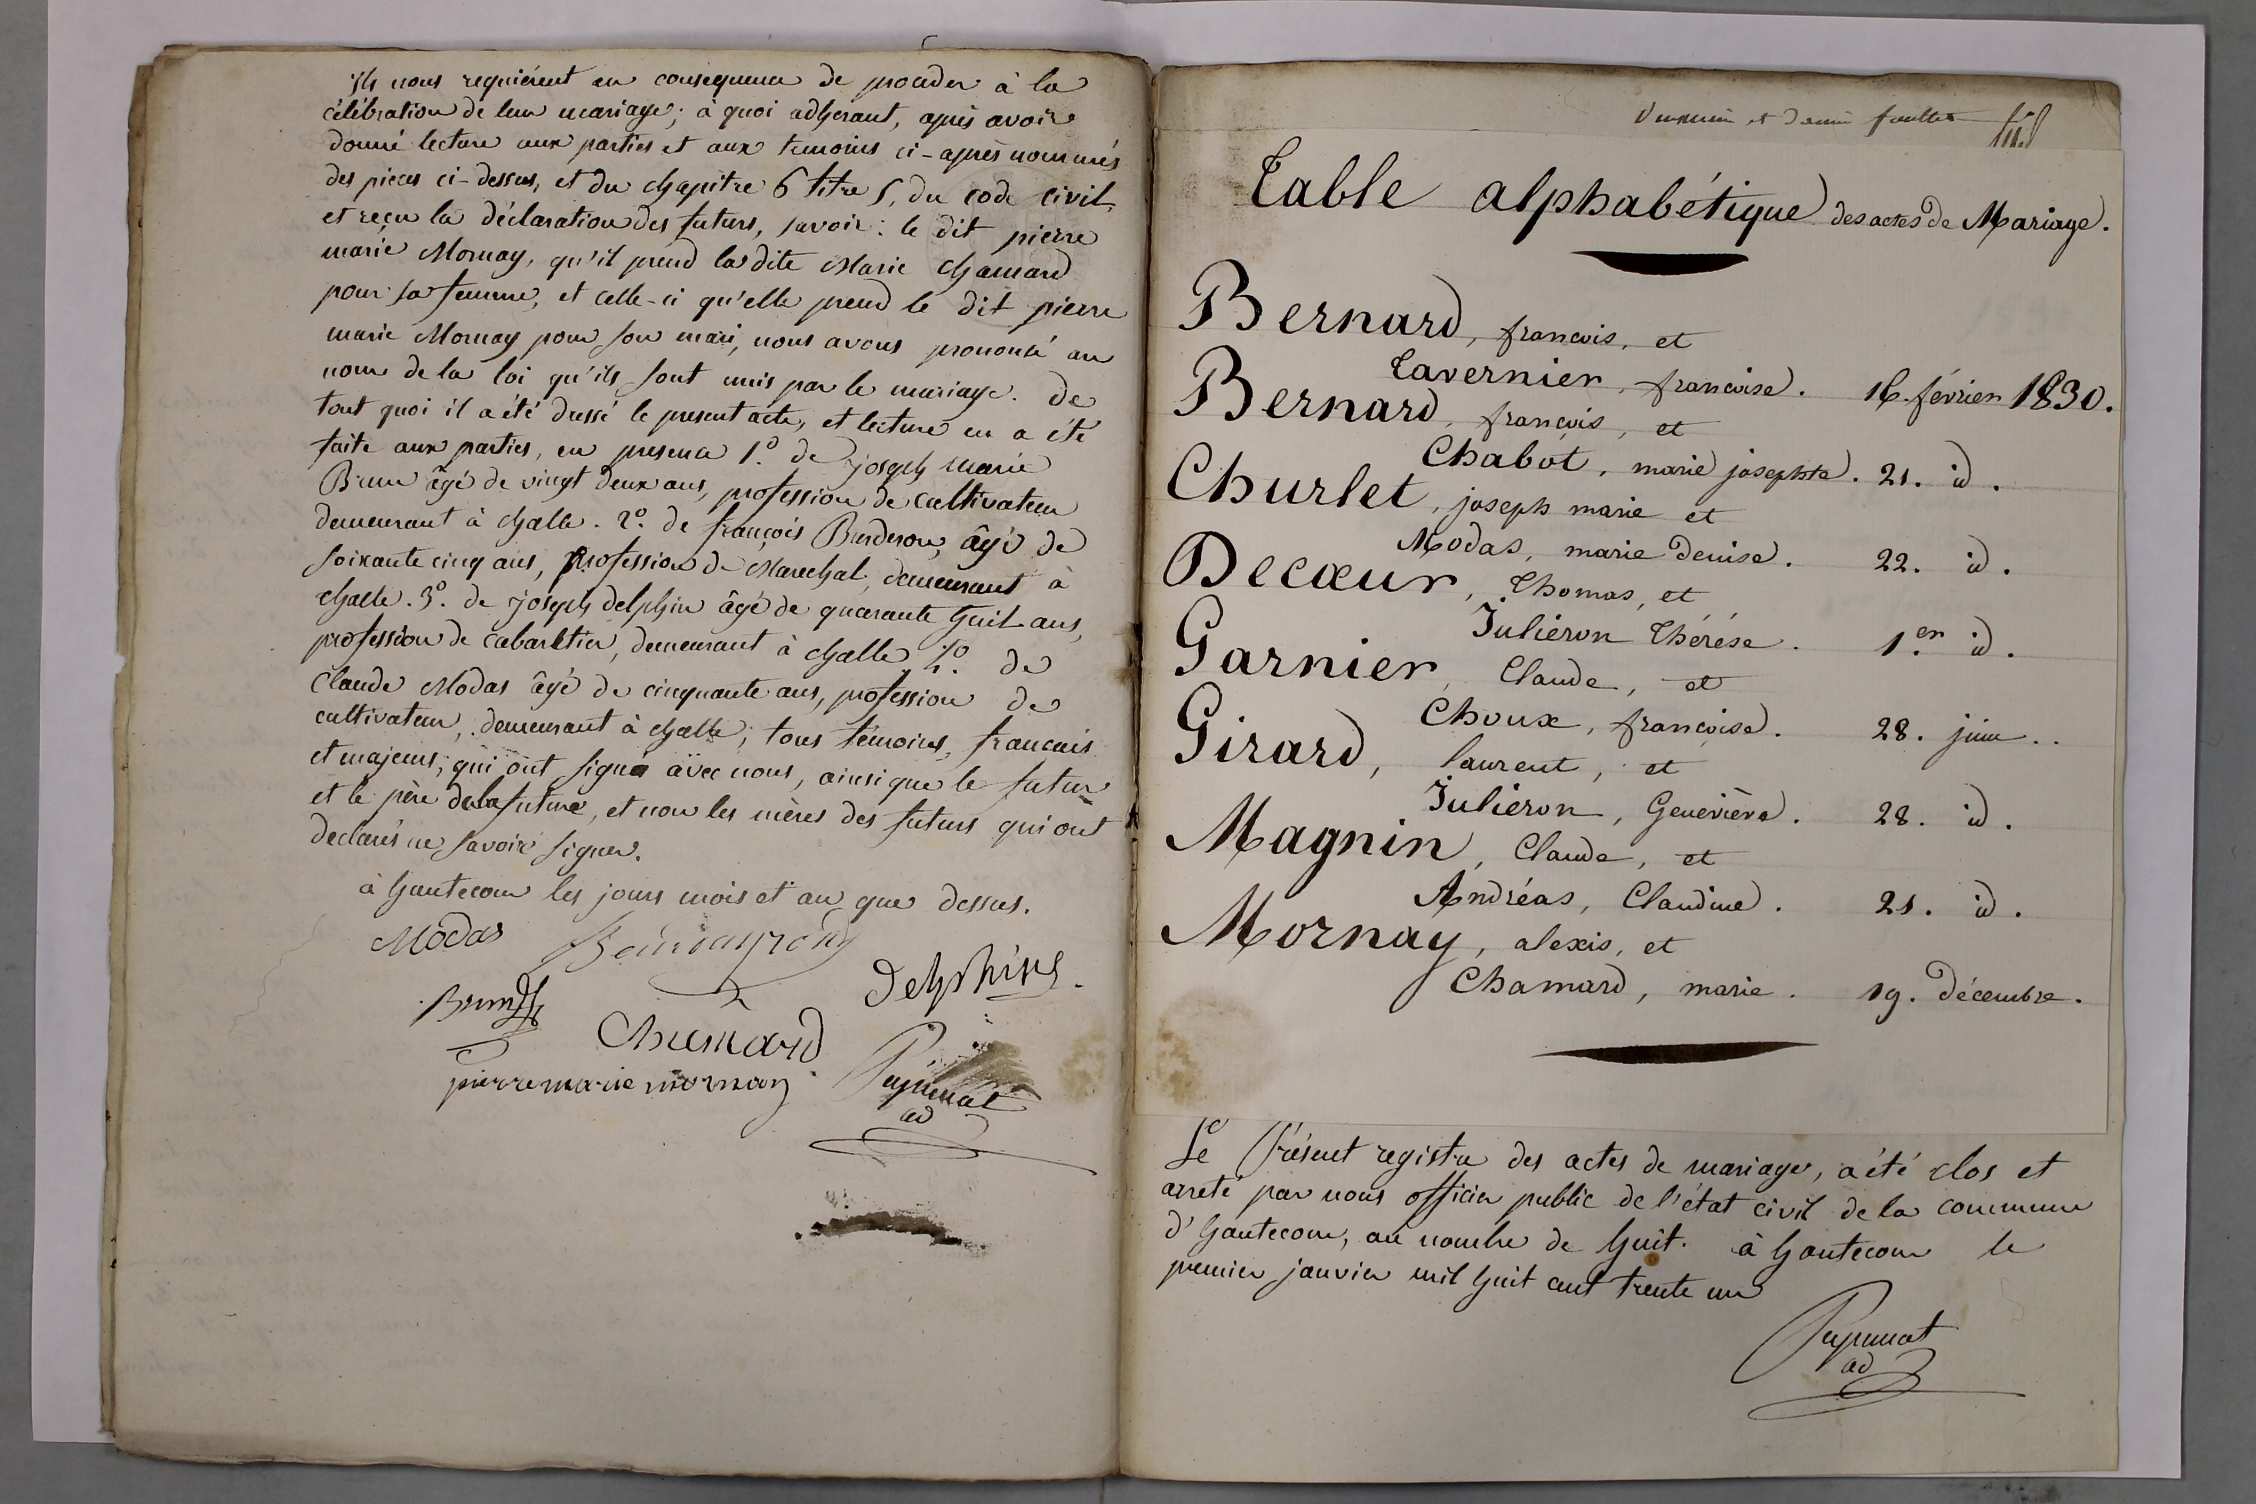 Ils nous requièrent en consequence de proceder à la
célébration de leur mariage; à quoi adherant, après avoir
donné lecture aux parties et aux temoins ci-après nommés
des pieces ci-dessus, et du chapitre 6 titre 5, du code civil,
et reçu la déclaration des futurs, savoir: le dit pierre
marie Mornay, qu'il prend la dite Marie Chamard
pour sa femme, et celle-ci qu'elle prend le dit pierre
marie Mornay pour son mari, nous avons prononcé au
nom de la loi qu'ils sont unis par le mariage. De
tout quoi il a été dressé le present acte, et lecture en a été
faite aux parties, en presence 1.° de joseph marie
Brun âgé de vingt deux ans, profession de cultivateur
demeurant à challe. 2.° de françois Burderon, âgé de
soixante cinq ans, profession de Marechal, demeurant à
challe. 3.° de joseph delphin âgé de quarante huit ans,
profession de cabaretier, demeurant à challe 4.° de
Claude Modas âgé de cinquante ans, profession de
cultivateur, demeurant à challe; tous témoins, francais
et majeurs, qui ont signé avec nous, ainsi que le futur
et le père de la future, et non les mères des futurs qui ont
declaré ne savoir signer.
à hautecour les jours mois et an que dessus.
Modas
Delphins.
Brun
Chamard
pierre marie mornay
ad
et demi
Table alphabétique des actes de Mariage.
Bernard, francois, et
Tavernier, francoise. 16. février 1830.
Bernard, françois, et
Chabot, marie josephte. 21. id.
Churlet, joseph marie et
Modas, marie Denise. 22. id.
Decœur, Thomas, et
Juliéron Thérése. 1.er id.
Garnier, Claude, et
Choux, françoise. 28. juin..
Girard, laurent, et
Juliéron, Geneviève. 28. id.
Magnin, Claude, et
Andréas, Claudine. 21. id.
Mornay, alexis, et
Chamard, marie. 19. décembre.
Le Présent registre des actes de mariage, a été clos et
arreté par nous officier public de l'état civil de la commune
d'hautecour, au nombre de huit. à hautecour le
premier janvier mil huit cent trente un
ad